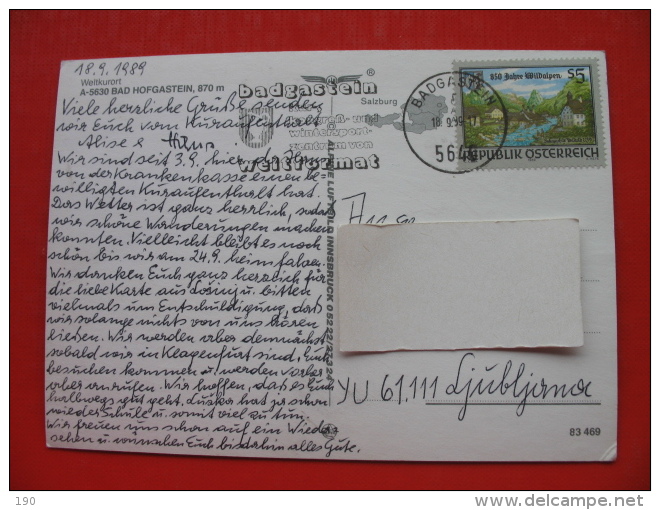 18.9.1989
Weltkurort
A-5630 BAD HOFGASTEIN, 870 m
Viele herzliche Grüße senden
wir Euch vom Kuraufenthalt
Alise & Hans
Wir sind seit 3.9. hier, da Hans
von der Krankenkasse einen be
willigten Kuraufenthalt hat.
Das Wetter ist ganz herrlich, sodaß
wir schöne Wanderungen machen
konnten. Vielleicht bleibt es noch
schön bis wir am 24.9. heim fahren.
Wir danken Euch ganz herzlich für
die liebe Karte aus Lošinj u. bitten
vielmals um Entschuldigung, daß
wir solange nichts von uns hören
ließen. Wir werden aber demnächst
sobald wir in Klagenfurt sind, Euch
besuchen kommen u. werden vorher
aber anrufen. Wir hoffen, daß es Euch
halbwegs gut geht. Luska hat ja schon
wieder Schule u. somit viel zu tun.
Wir freuen uns schon auf ein Wieder
sehen u. wünschen Euch bis dahin alles Gute.
badgastein
®
Salzburg
und
wintersport-
zentrum von
weltformat
BADGASTEIN
18.9.89-17
5640
850 Jahre Wildalpen
S5
REPUBLIK ÖSTERREICH
ALPINE LUFTBILD INNSBRUCK 05222/27324
YU 61.111 Ljubljana
83 469
190
delcampe.net